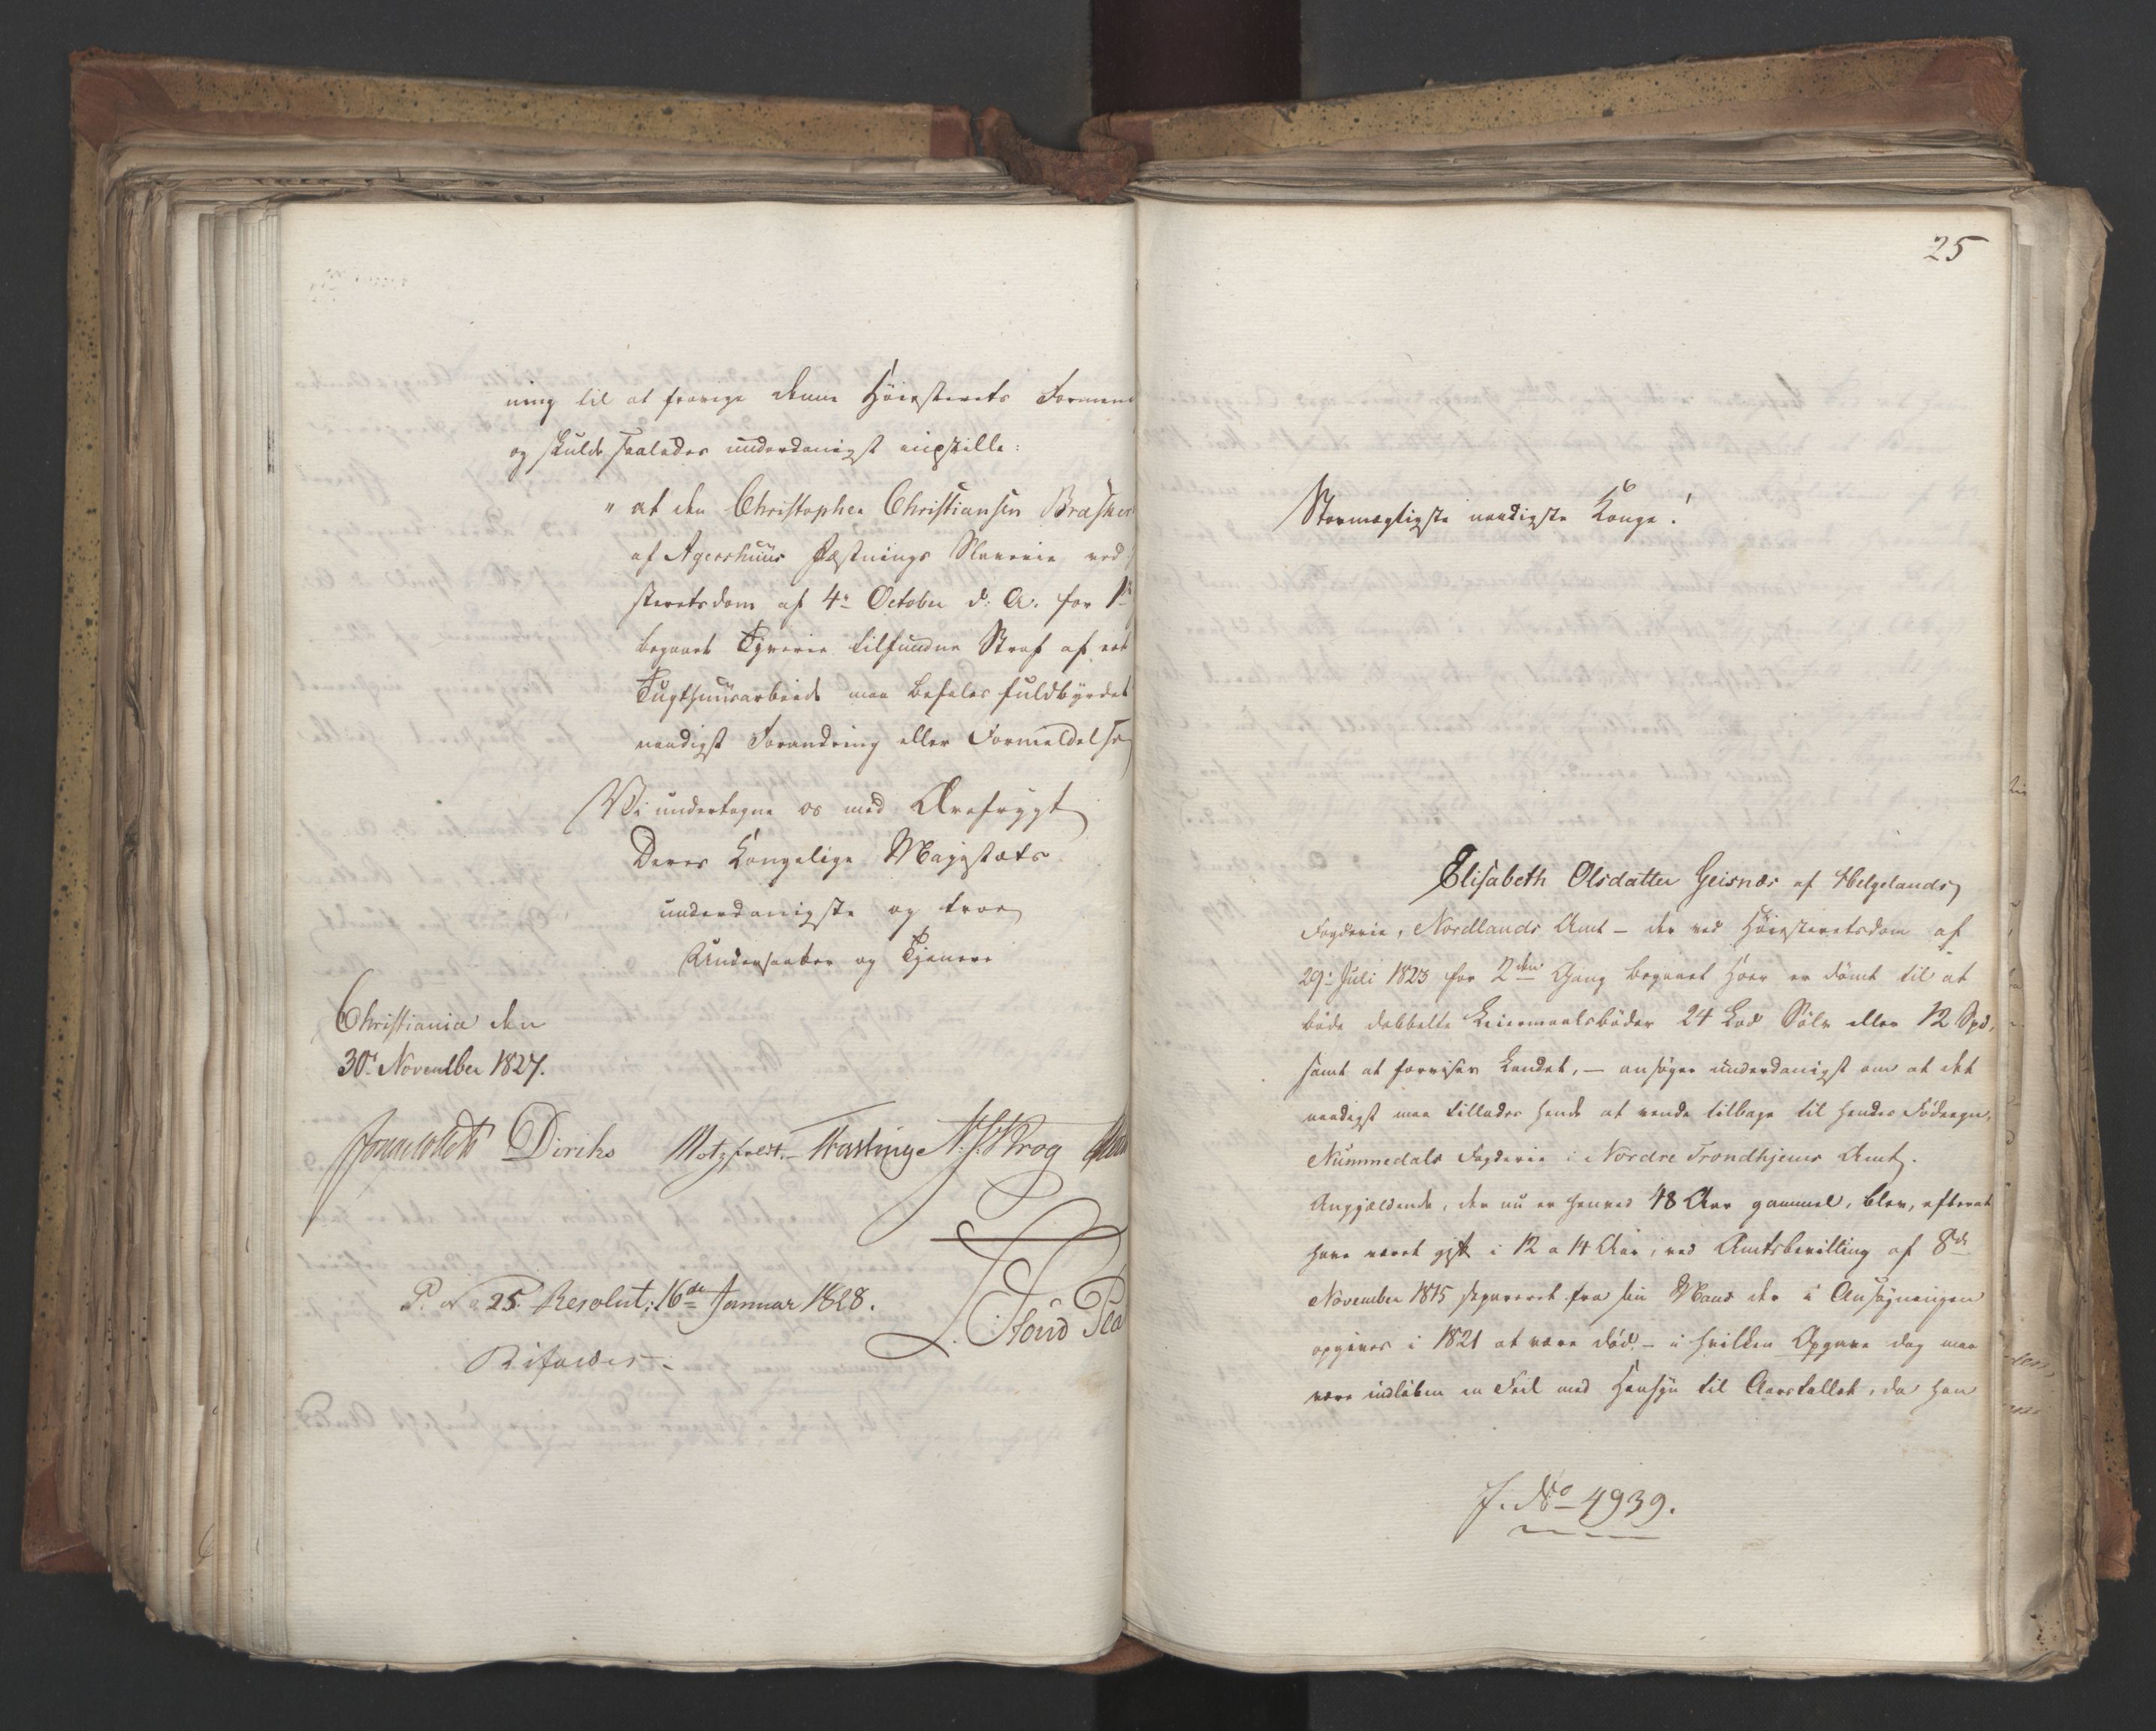 ning til at fravige denne Höiesterets Formeni
og skulde saaledes underdanigst indstille:
" at den Christopher Christiansen Brasker
af Agershuus Fæstnings Slaverie ved
steretsdom af 4de October d: A: for 1ste
begaaet Tyverie tilfundne Straf af
Tugthuusarbeide maa befales fuldbyrdet
naadigst Forandring eller Formildelse
Vi undertegne os med Ærefrygt
Deres Kongelige Majestæts
underdanigste og troe
Undersaatter og Tjenere
Christiania den
30te November 1827.
Diriks Motzfeldt Fasting N. J. Krog
P. No 25. Resolut: 16de Januar 1828.
Bifaldes.
25
Stormægtigste naadigste Konge!
Elisabeth Olsdatter Geisnæs af Helgelands
Fogderie, Nordlands Amt – der ved Höiesteretsdom af
29de Juli 1823 for 2den Gang begaaet Hoer er dömt til at
böde dobbelte Leiermaalsböder 24 Lod Sölv eller 12 Spd,
samt at forvises Landet, – ansöger underdanigst om at det
naadigst maa tillades hende at vende tilbage til hendes Födeegn,
Nummedals Fogderie i Nordre Trondhjems Amt.
Angjældende, der nu er henved 48 Aar gammel, blev, efterat
have været gift i 12 a 14 Aar, ved Amtsbevilling af 8de
November 1815 separeret fra sin Mand der i Ansögningen
opgives i 1821 at være död – i hvilken Opgave dog maa
være indlöben en Feil med Hensyn til Aarstallet, da han
J. No 4939.